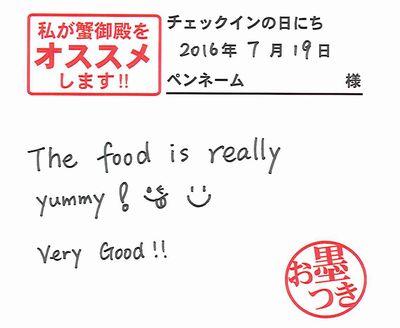 私が蟹御殿を
オススメ
します!!
チェックインの日にち
2016年7月19日
ペンネーム 様
The food is really
yummy!
Very Good!!
お墨
つき